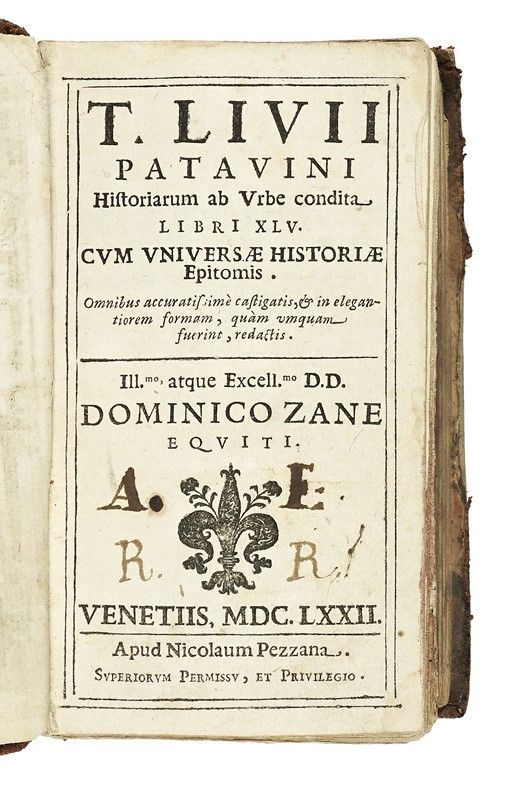 T. LIVII
PATAVINI
Hiſtoriarum ab Vrbe condita
LIBRI XLV.
CVM VNIVERSÆ HISTORIÆ
Epitomis .
Omnibus accuratiſsimè caſtigatis, & in elegan-
tiorem formam , quàm vmquam
fuerint , redactis .
Ill.mo, atque Excell.mo D.D.
DOMINICO ZANE
EQVITI.
A. E.
R. R.
VENETIIS, MDC. LXXII.
Apud Nicolaum Pezzana .
SVPERIORVM PERMISSV , ET PRIVILEGIO .